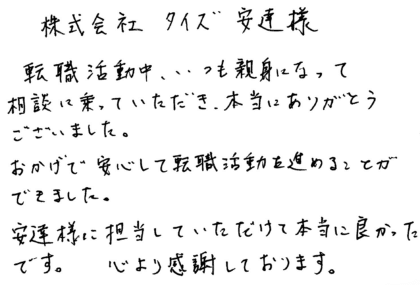 株式会社 タイズ 安達様
転職活動中、いつも親身になって
相談に乗っていただき、本当にありがとう
ございました。
おかげで安心して転職活動を進めることが
できました。
安達様に担当していただけて本当に良かった
です。 心より感謝しております。